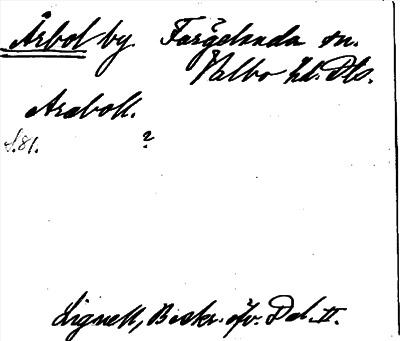 Årbol by Färgelanda sn.
Valbo hd. Dls.
Araboll.
s. 81. ?
Lignell, Beskr. öfv. Dal. II.